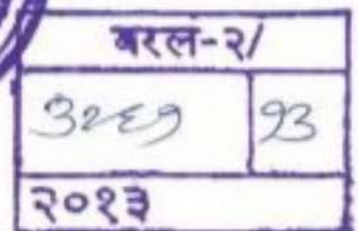 बरल-२/
३२६१ १३
२०१३